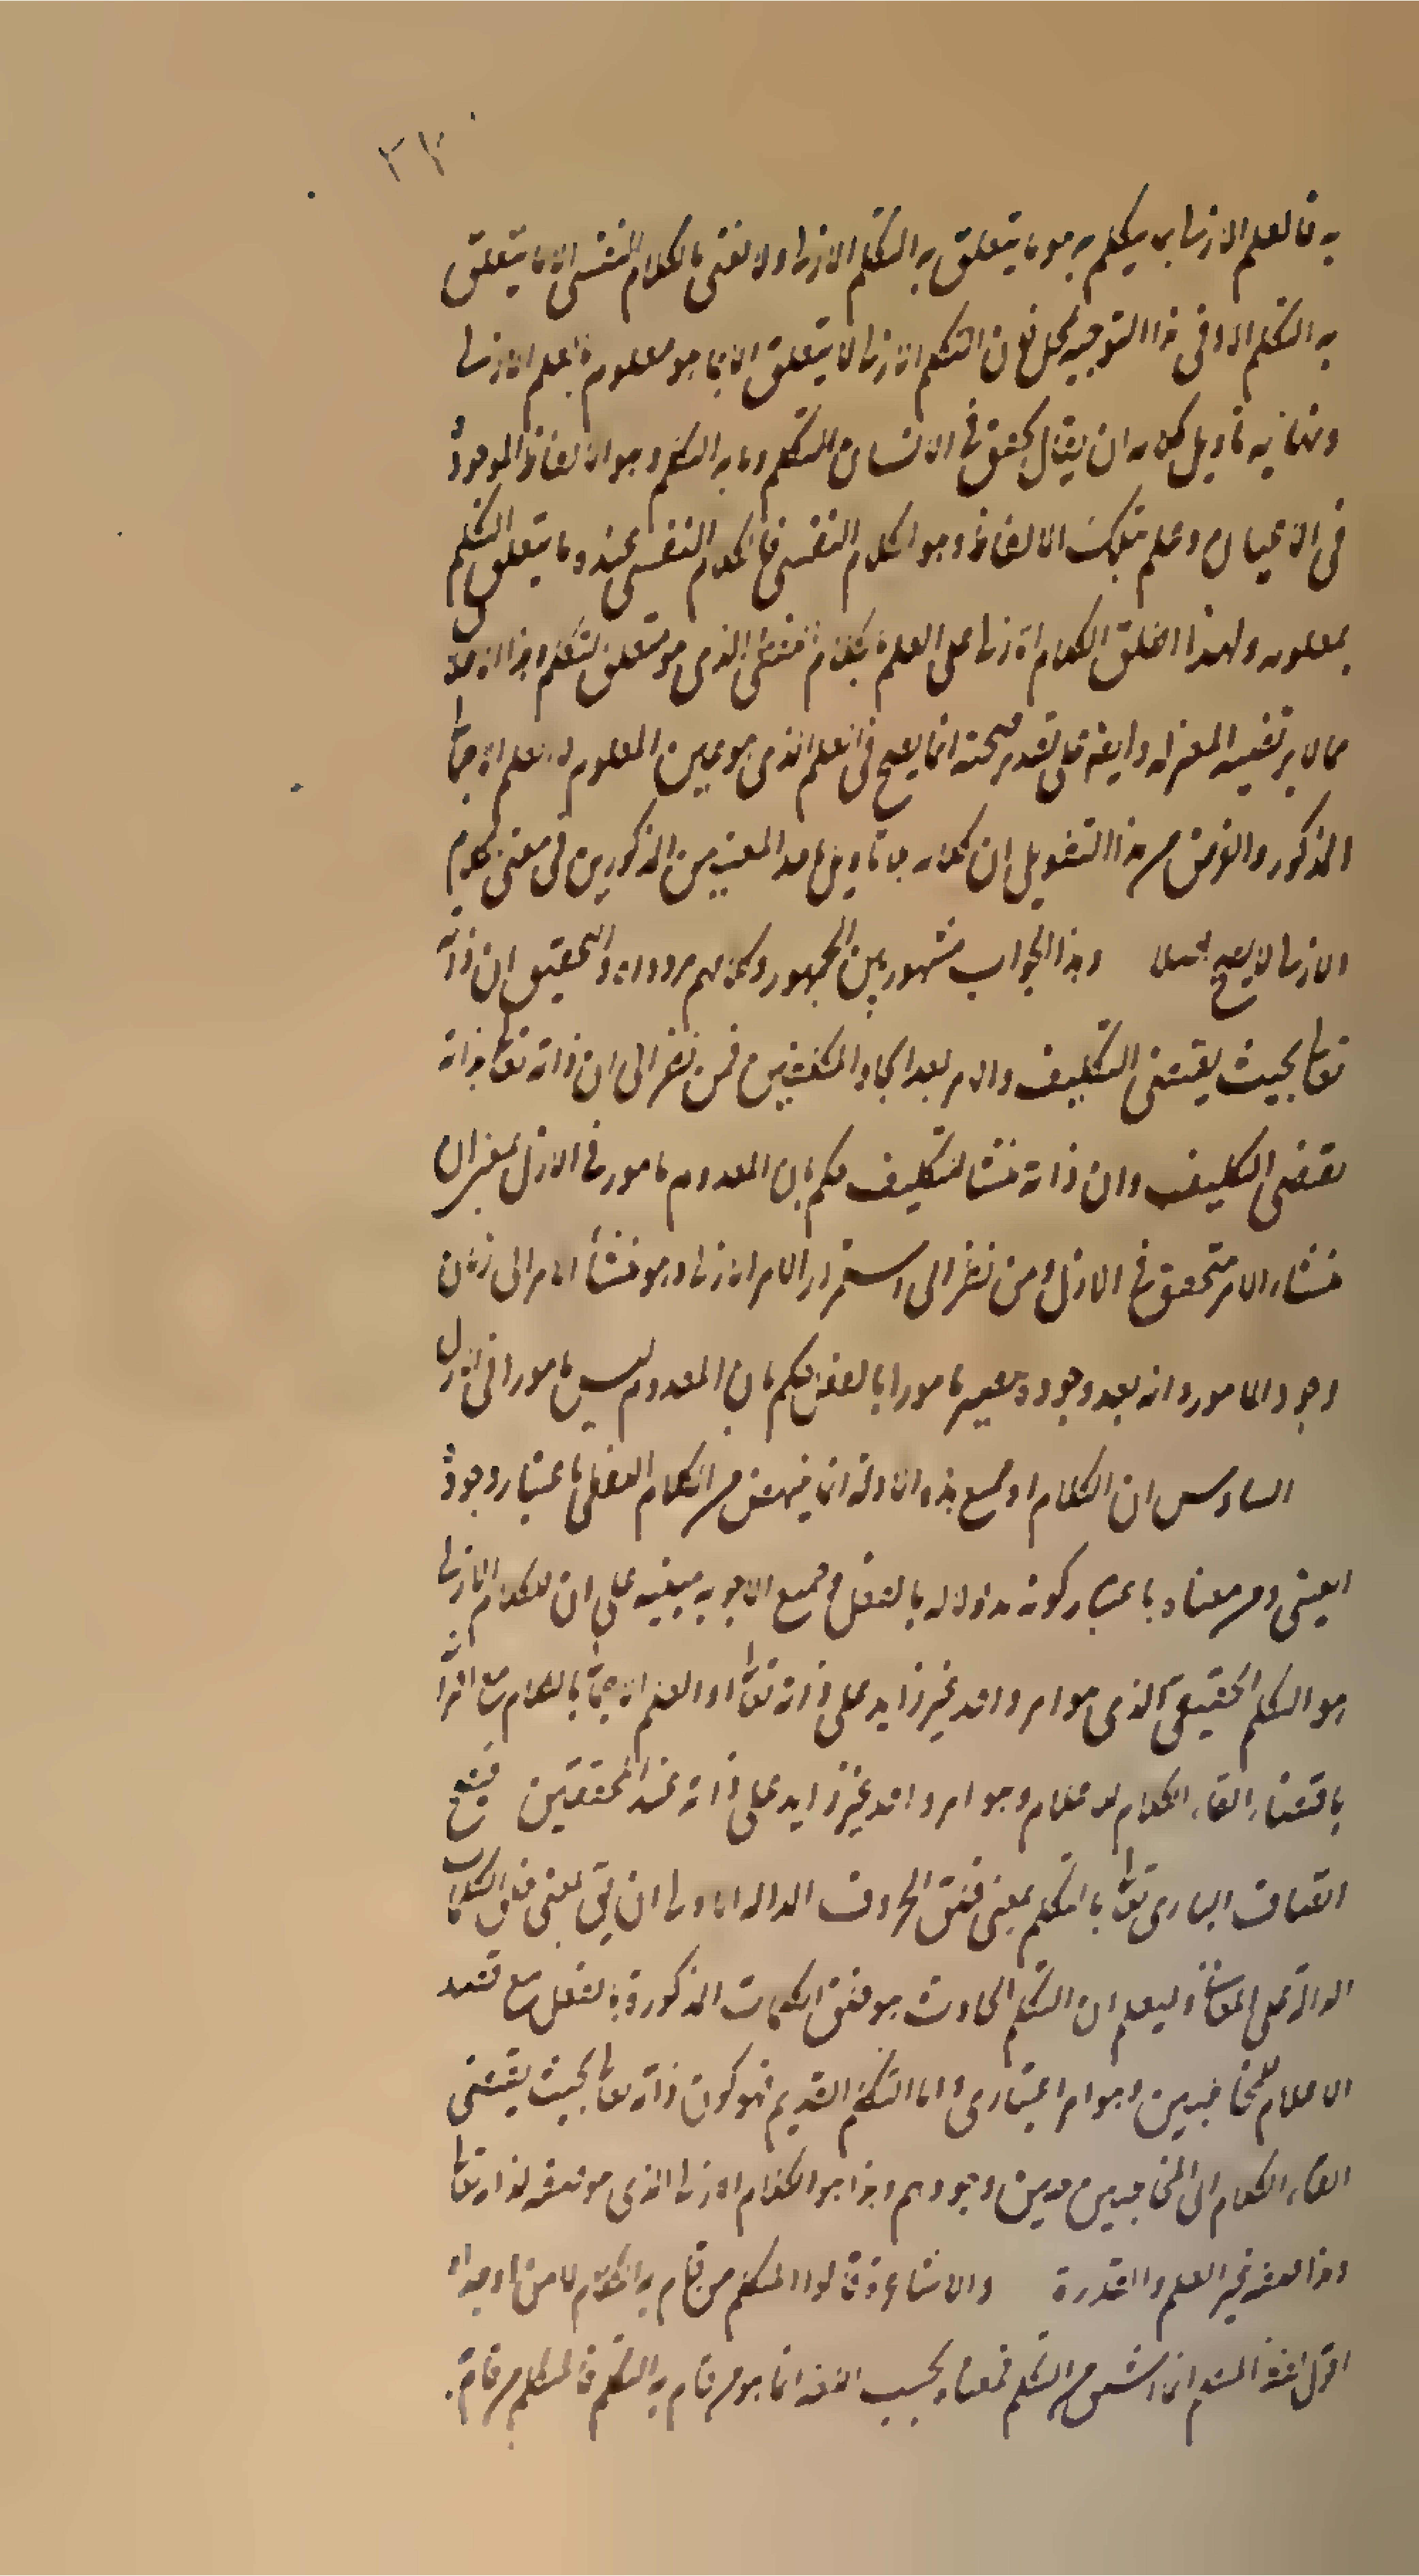 ٢٣
به فالعلم الازلي بما يتكلم به هو ما يتعلق به التكلم الازلي ولا نعني بالكلام النفسي الا ما يتعلق
به التكلم الا وفى هذا التوجيه محل فان التكلم الازلي لا يتعلق الا بما هو معلوم بعلم الازلي
ونهاية تاويل كلامه ان يقال يتحقق في الانسان المتكلم وما به التكلم وهو الالفاظ الموجودة
فى الاعيان وعلم بتلك الالفاظ وهو الكلام النفسى فالكلام النفسي عنده ما يتعلق التكلم
بمعلومه ولهذا اطلق الكلام الازلي على العلم بكلام لفظى الذى هو متعلق التكلم وهذا
مما لا يرتضيه المعتزلة وايضا على تقدير صحته انما يصح فى العلم الذى هو عين المعلوم لا العلم الاجمالي
المذكور والغرض من هذا التفصيل ان كلامه بلا تاويل احد المعنيين المذكورين فى معنى كلام
الازلي لا يصح اصلا وهذا الجواب مشهور بين الجمهور وكلامهم مردود والتحقيق ان ذاته
تعالى بحيث يقتضى التكليف والامر بعد ايجاد المكلفين فمن نظر الى ان ذاته تعالى بذاته
يقتضى التكليف وان ذاته منشا للتكليف حكم بان المعدوم مامور فى الازل بمعنى ان
منشاء الامر متحقق فى الازل ومن نظر الى استمرار الامر الازلي وهو منشأ الامر الى زمان
وجود المامور وانه بعد وجوده يصير مامورا بالفعل حكم بان المعدوم ليس مامورا فى الازل
السادس ان الكلام اه جميع هذه الادلة انما ينهض من الكلام اللفظى باعتبار وجوده
العينى ومن معناه باعتبار كونه مدلولا له بالفعل وجميع الاجوبه مبنيه على ان الكلام الازلي
هو التكلم الحقيقى الذى هو امر واحد غير زايد على ذاته تعالى او العلم الاجمالي بالكلام مع اقترانه
باقتضاء القاء الكلام للاعلام وهو امر واحد غير زايد على ذاته عند المحققين فيصح
اتصاف البارى تعالى بالتكلم بمعنى خلق الحروف الداله الاولى ان يق بمعنى خلق الكلمات
الدالة على المعانى وليعلم ان التكلم الحادث هو خلق الكلمات المذكورة بالفعل مع قصد
الاعلام للمخاطبين وهو امر اعتبارى واما التكلم القديم فهو كون ذاته تعالى بحيث يقتضى
القاء الكلام الى المخاطبين حين وجودهم وهذا هو الكلام الازلي الذى هو صفة لذاته تعالى
وهذا الصفه غير العلم والقدرة والاشاعرة قالوا المتكلم من قام به الكلام لا من اوجده اه
اقول لفظ المتكلم انما اشتق من التكلم فمعناه بحسب اللغة انما هو من قام به التكلم فالمتكلم من قام